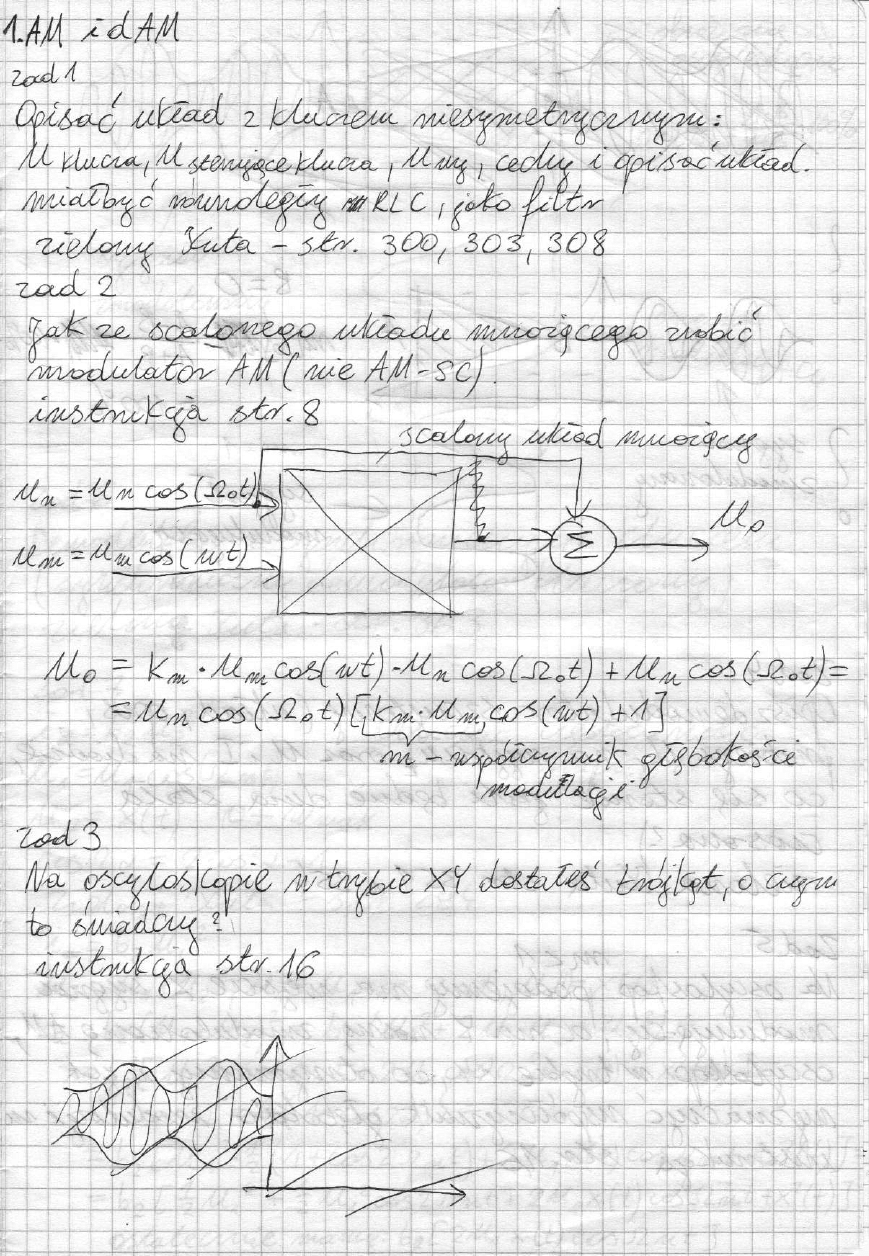 1. AM i dAM
zad 1
Opisać układ z kluczem niesymetrycznym:
U klucza, U sterujące klucza, U wy, cechy i opisać układ.
miał być równoległy RLC, jako filtr
zielony Kuta – str. 300, 303, 308
zad 2
Jak ze scalonego układu mnożącego zrobić
modulator AM (nie AM-SC).
instrukcja str. 8
scalony układ mnożący
u_n = U_n cos(Ω₀t)
u_m = U_m cos(ωt)
Σ
U₀
U₀ = K_m · U_m cos(ωt) · U_n cos(Ω₀t) + U_n cos(Ω₀t) =
= U_n cos(Ω₀t) [K_m · U_m cos(ωt) + 1]
m – współczynnik głębokości
modulacji
zad 3
Na oscyloskopie w trybie XY dostałeś trójkąt, o czym
to świadczy?
instrukcja str. 16